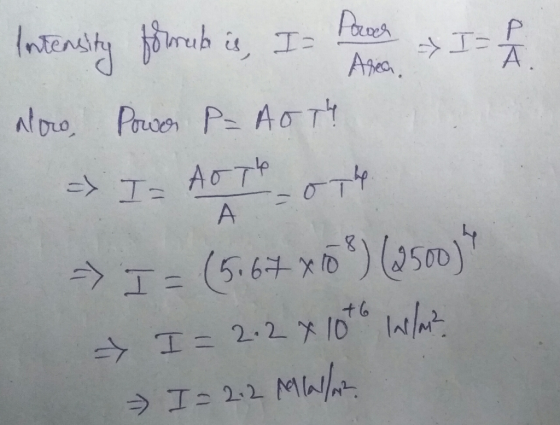 Intensity formula is, I = Power / Area. ⇒ I = P / A.
Now, Power P = AσT⁴
⇒ I = AσT⁴ / A = σT⁴
⇒ I = (5.67 × 10⁻⁸) (2500)⁴
⇒ I = 2.2 × 10⁺⁶ W/m².
⇒ I = 2.2 MW/m².